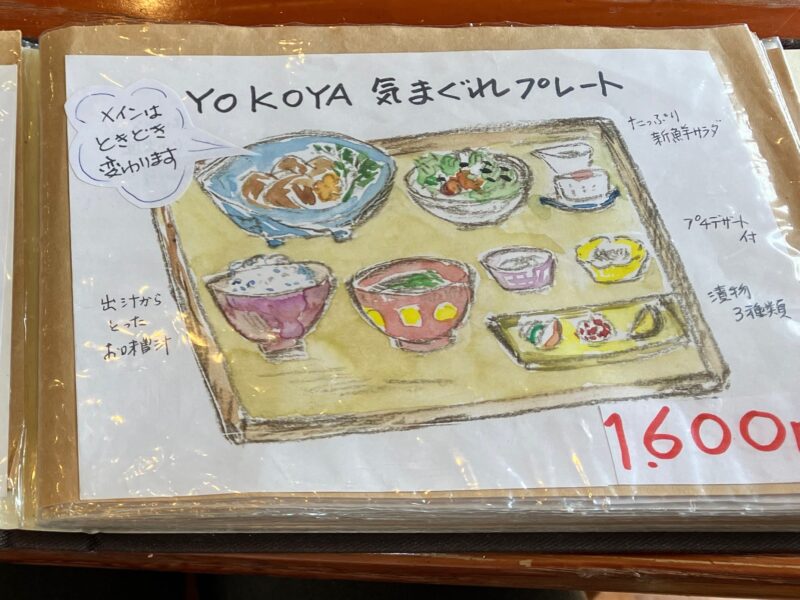 YOKOYA 気まぐれプレート
メインは
ときどき
変わります
たっぷり
新鮮サラダ
プチデザート
付
漬物
3種類
出汁から
とった
お味噌汁
1,600